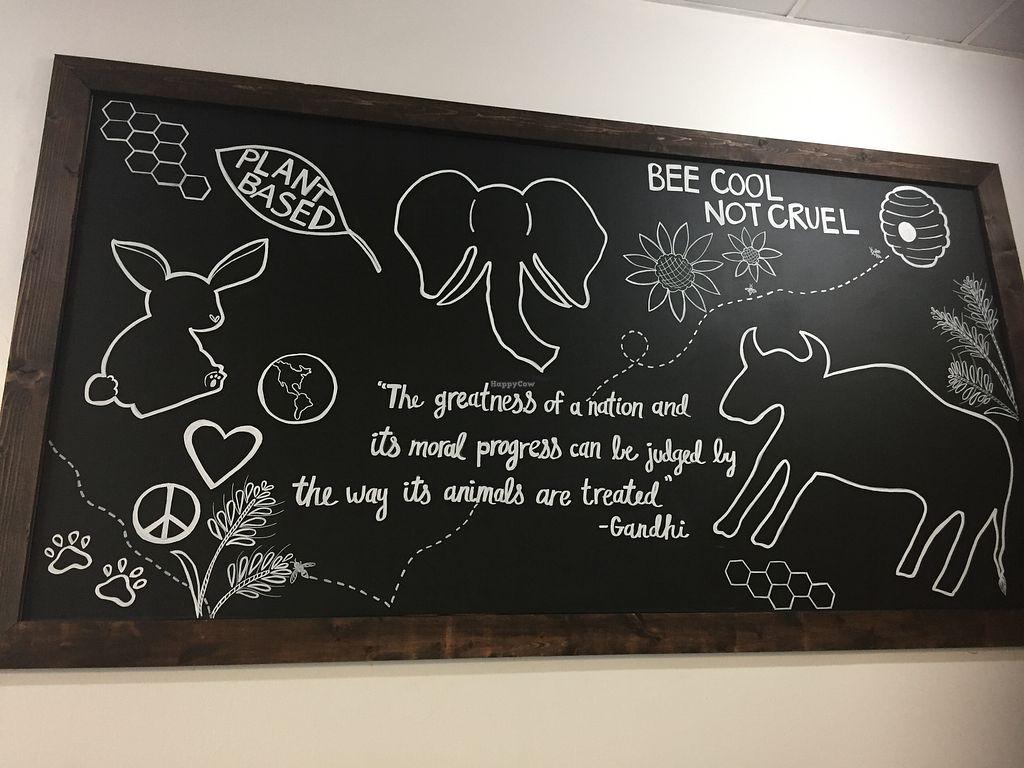 PLANT
BASED
BEE COOL
NOT CRUEL
HappyCow
"The greatness of a nation and
its moral progress can be judged by
the way its animals are treated"
-Gandhi